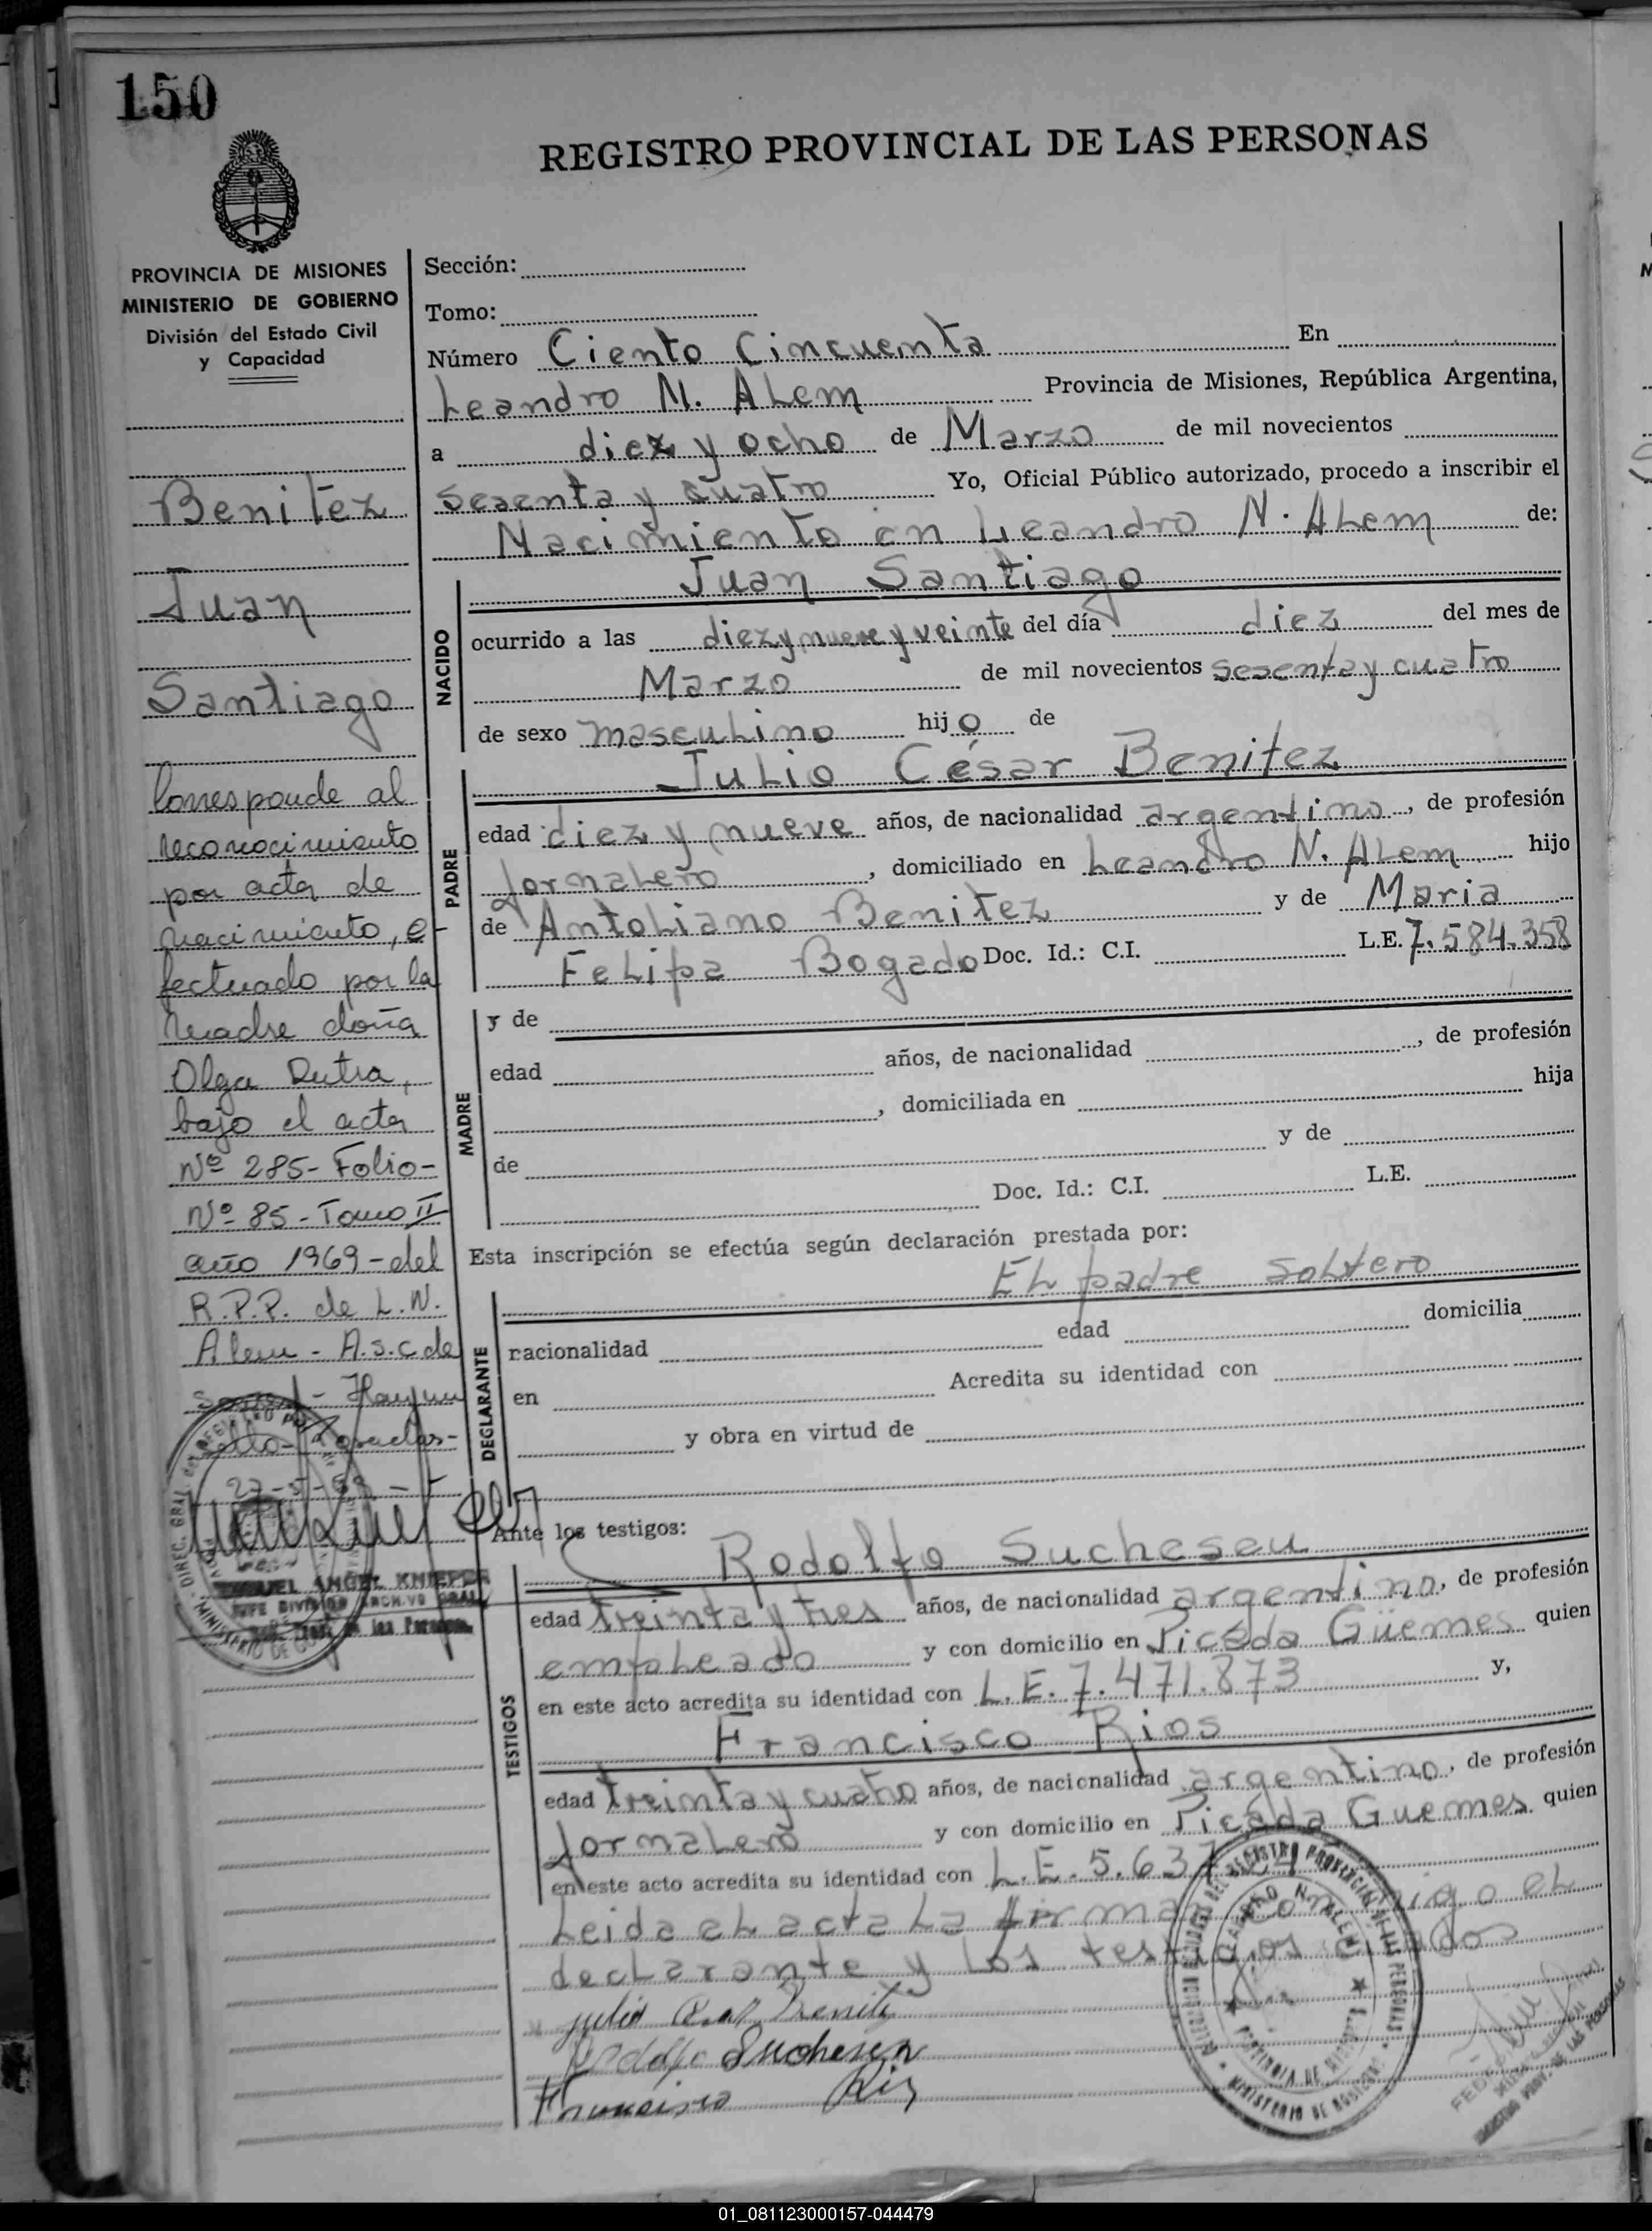 150
REGISTRO PROVINCIAL DE LAS PERSONAS
PROVINCIA DE MISIONES
MINISTERIO DE GOBIERNO
División del Estado Civil
y Capacidad
Benitez
Juan
Santiago
Corresponde al
reconocimiento
por acta de
nacimiento, e-
fectuado por la
madre doña
Olga Dutra,
bajo el acta
Nº 285- Folio-
Nº 85- Tomo II
año 1969- del
R.P.P. de L.N.
Alem - A.s.c de
27-5-
ANGEL
JEFE DIVISION ARCHIVO GRAL.
Sección:
Tomo:
Número Ciento Cincuenta En
Leandro N. ALem Provincia de Misiones, República Argentina,
a diez y ocho de Marzo de mil novecientos
sesenta y cuatro Yo, Oficial Público autorizado, procedo a inscribir el
Nacimiento en Leandro N. ALem de:
NACIDO
Juan Santiago
ocurrido a las diez y nueve y veinte del día diez del mes de
Marzo de mil novecientos sesenta y cuatro
de sexo mascuLino hijo de
PADRE
JuLio César Benitez
edad diez y nueve años, de nacionalidad argentino, de profesión
JornaLero, domiciliado en Leandro N. ALem hijo
de AntoLiano Benitez y de Maria
FeLipa Bogado Doc. Id.: C.I. L.E. 7.584.358
MADRE
y de
edad años, de nacionalidad , de profesión
, domiciliada en hija
de y de
Doc. Id.: C.I. L.E.
Esta inscripción se efectúa según declaración prestada por:
DECLARANTE
EL padre soLtero
nacionalidad edad domicilia
en Acredita su identidad con
y obra en virtud de
Ante los testigos:
TESTIGOS
RodoLfo Sucheseu
edad treinta y tres años, de nacionalidad argentino, de profesión
empLeado y con domicilio en Picada Güemes quien
en este acto acredita su identidad con L.E. 7.471.873 y,
Francisco Rios
edad treinta y cuatro años, de nacionalidad argentino, de profesión
JornaLero y con domicilio en Picada Guemes quien
en este acto acredita su identidad con L.E. 5.637
Leida eL acta La firma conmigo eL
decLarante y Los testigos citados
Julio Benitez
Rodolfo
Francisco Rios
01_081123000157-044479